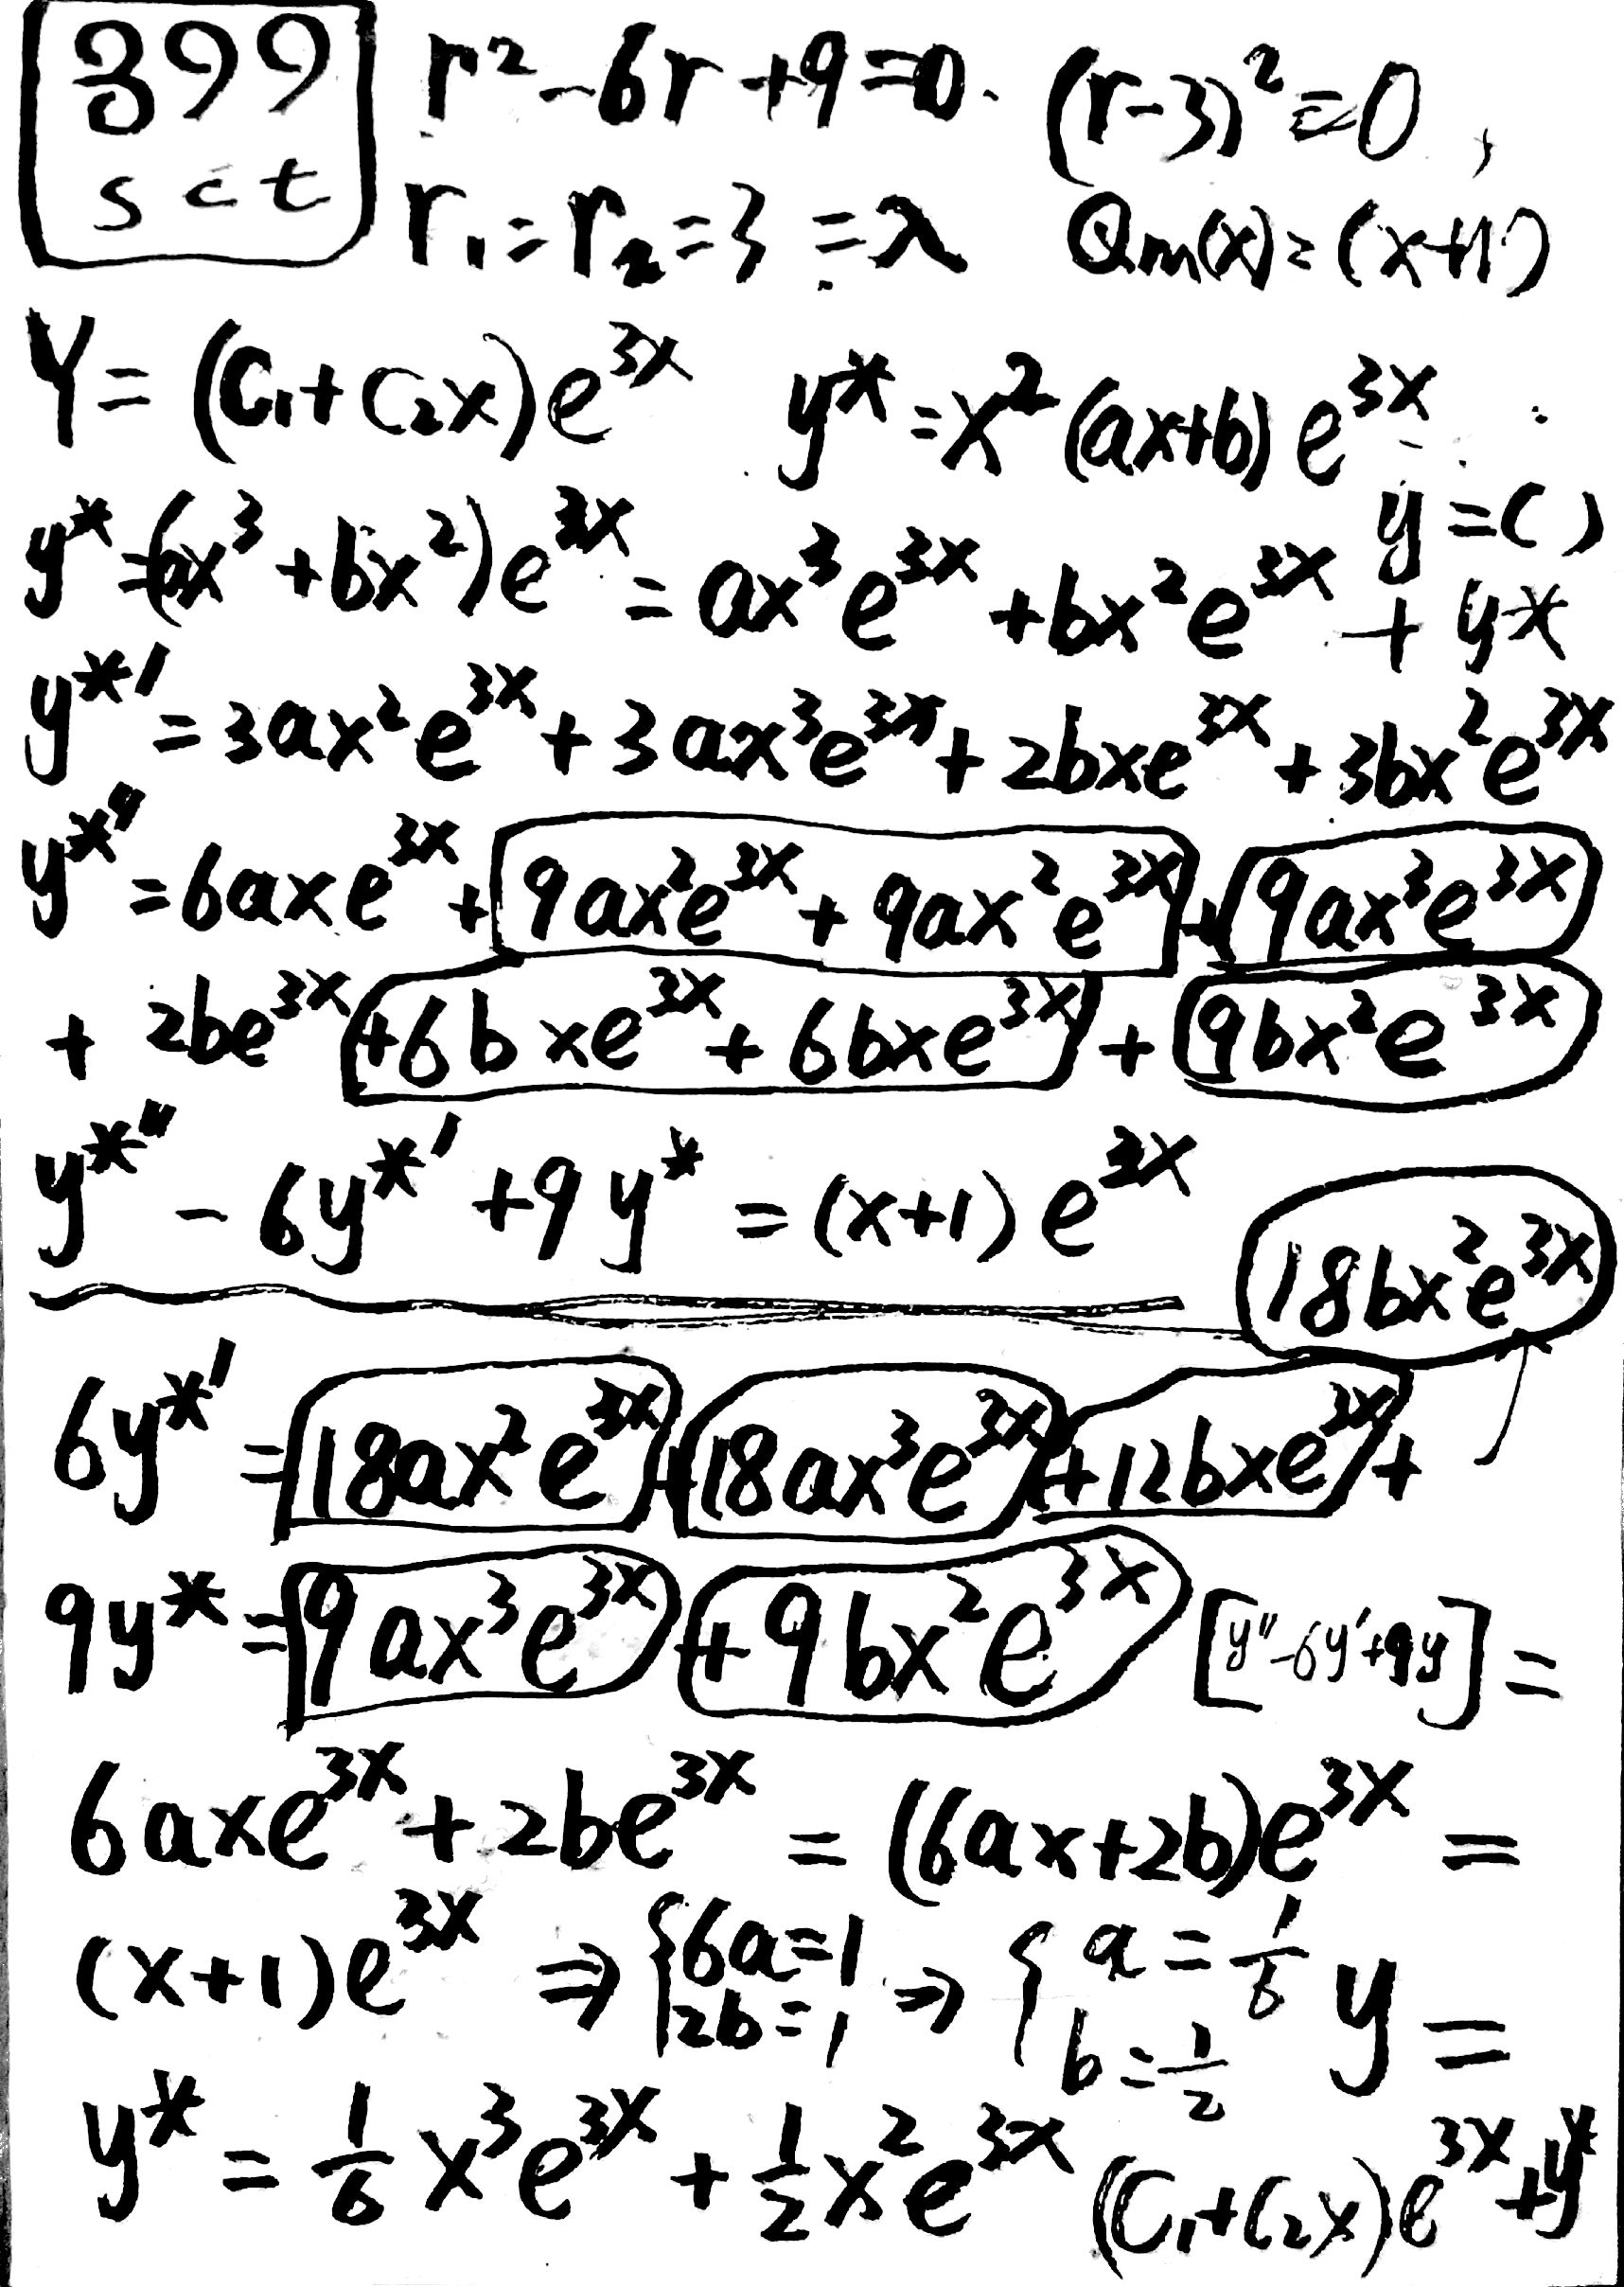 899 r² - 6r + 9 = 0. (r-3)² = 0,
sct r₁ = r₂ = 3 = λ Qm(x) = (x+1)
Y = (C₁+C₂x)e³ˣ y* = x²(ax+b)e³ˣ
y = ( )
y* = (ax³+bx²)e³ˣ = ax³e³ˣ + bx²e³ˣ + y*
y*' = 3ax²e³ˣ + 3ax³e³ˣ + 2bxe³ˣ + 3bx²e³ˣ
y*'' = 6axe³ˣ + 9ax²e³ˣ + 9ax²e³ˣ + 9ax³e³ˣ
+ 2be³ˣ + 6bxe³ˣ + 6bxe³ˣ + 9bx²e³ˣ
y*'' - 6y*' + 9y* = (x+1)e³ˣ
18bx²e³ˣ
6y*' = 18ax²e³ˣ + 18ax³e³ˣ + 12bxe³ˣ +
9y* = 9ax³e³ˣ + 9bx²e³ˣ [y''-6y'+9y] =
6axe³ˣ + 2be³ˣ = (6ax+2b)e³ˣ =
(x+1)e³ˣ ⇒ {6a=1 2b=1 ⇒ {a=1/6 b=1/2 y =
y* = 1/6 x³e³ˣ + 1/2 x²e³ˣ (C₁+C₂x)e³ˣ+y*